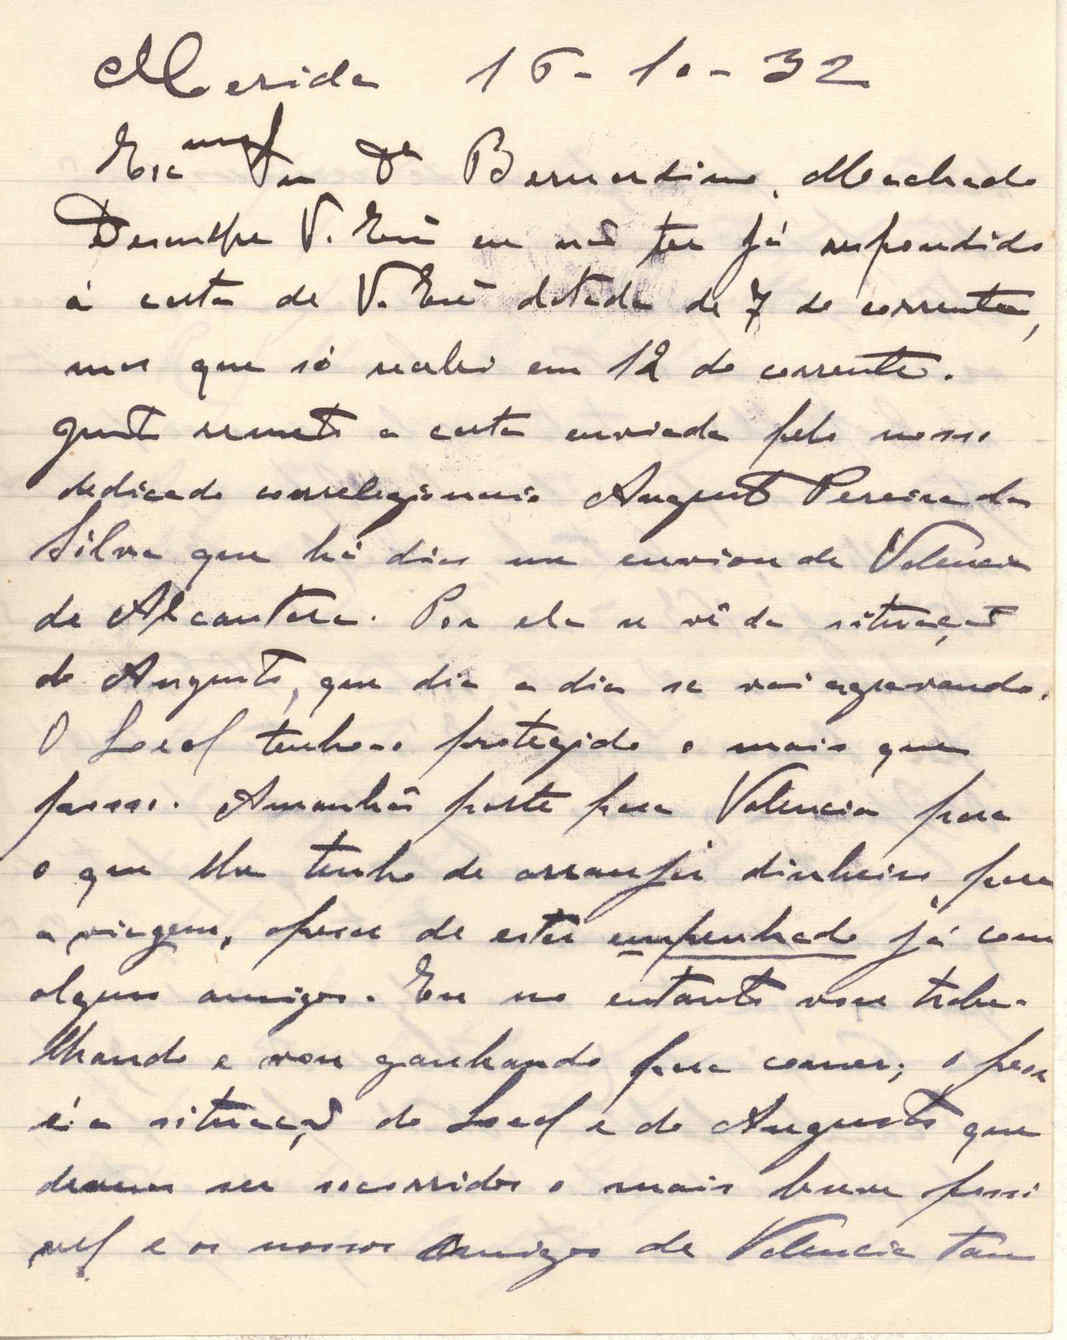 Merida 16-10-32
Exmo Snr Dr Bernardino Machado
Desculpe V. Exciª eu não ter já respondido
á carta de V. Exciª datada de 7 do corrente,
mas que só recebi em 12 do corrente.
Junto remeto a carta enviada pelo nosso
dedicado correlegionario Augusto Pereira da
Silva que há dias me enviou de Valencia
de Alcantara. Por ela se vê da situação
do Augusto, que dia a dia se vai agravando.
O Leal tenho-o protegido o mais que
posso. Amanhã parte para Valencia para
o que lhe tenho de arranjar dinheiro para
a viagem, apesar de estar empenhado já com
alguns amigos. Eu no entanto vou traba-
lhando e vou ganhando para comer; o peor
é a situação do Leal e do Augusto que
devem ser socorridos o mais breve possi
vel e os nossos amigos de Valencia tam